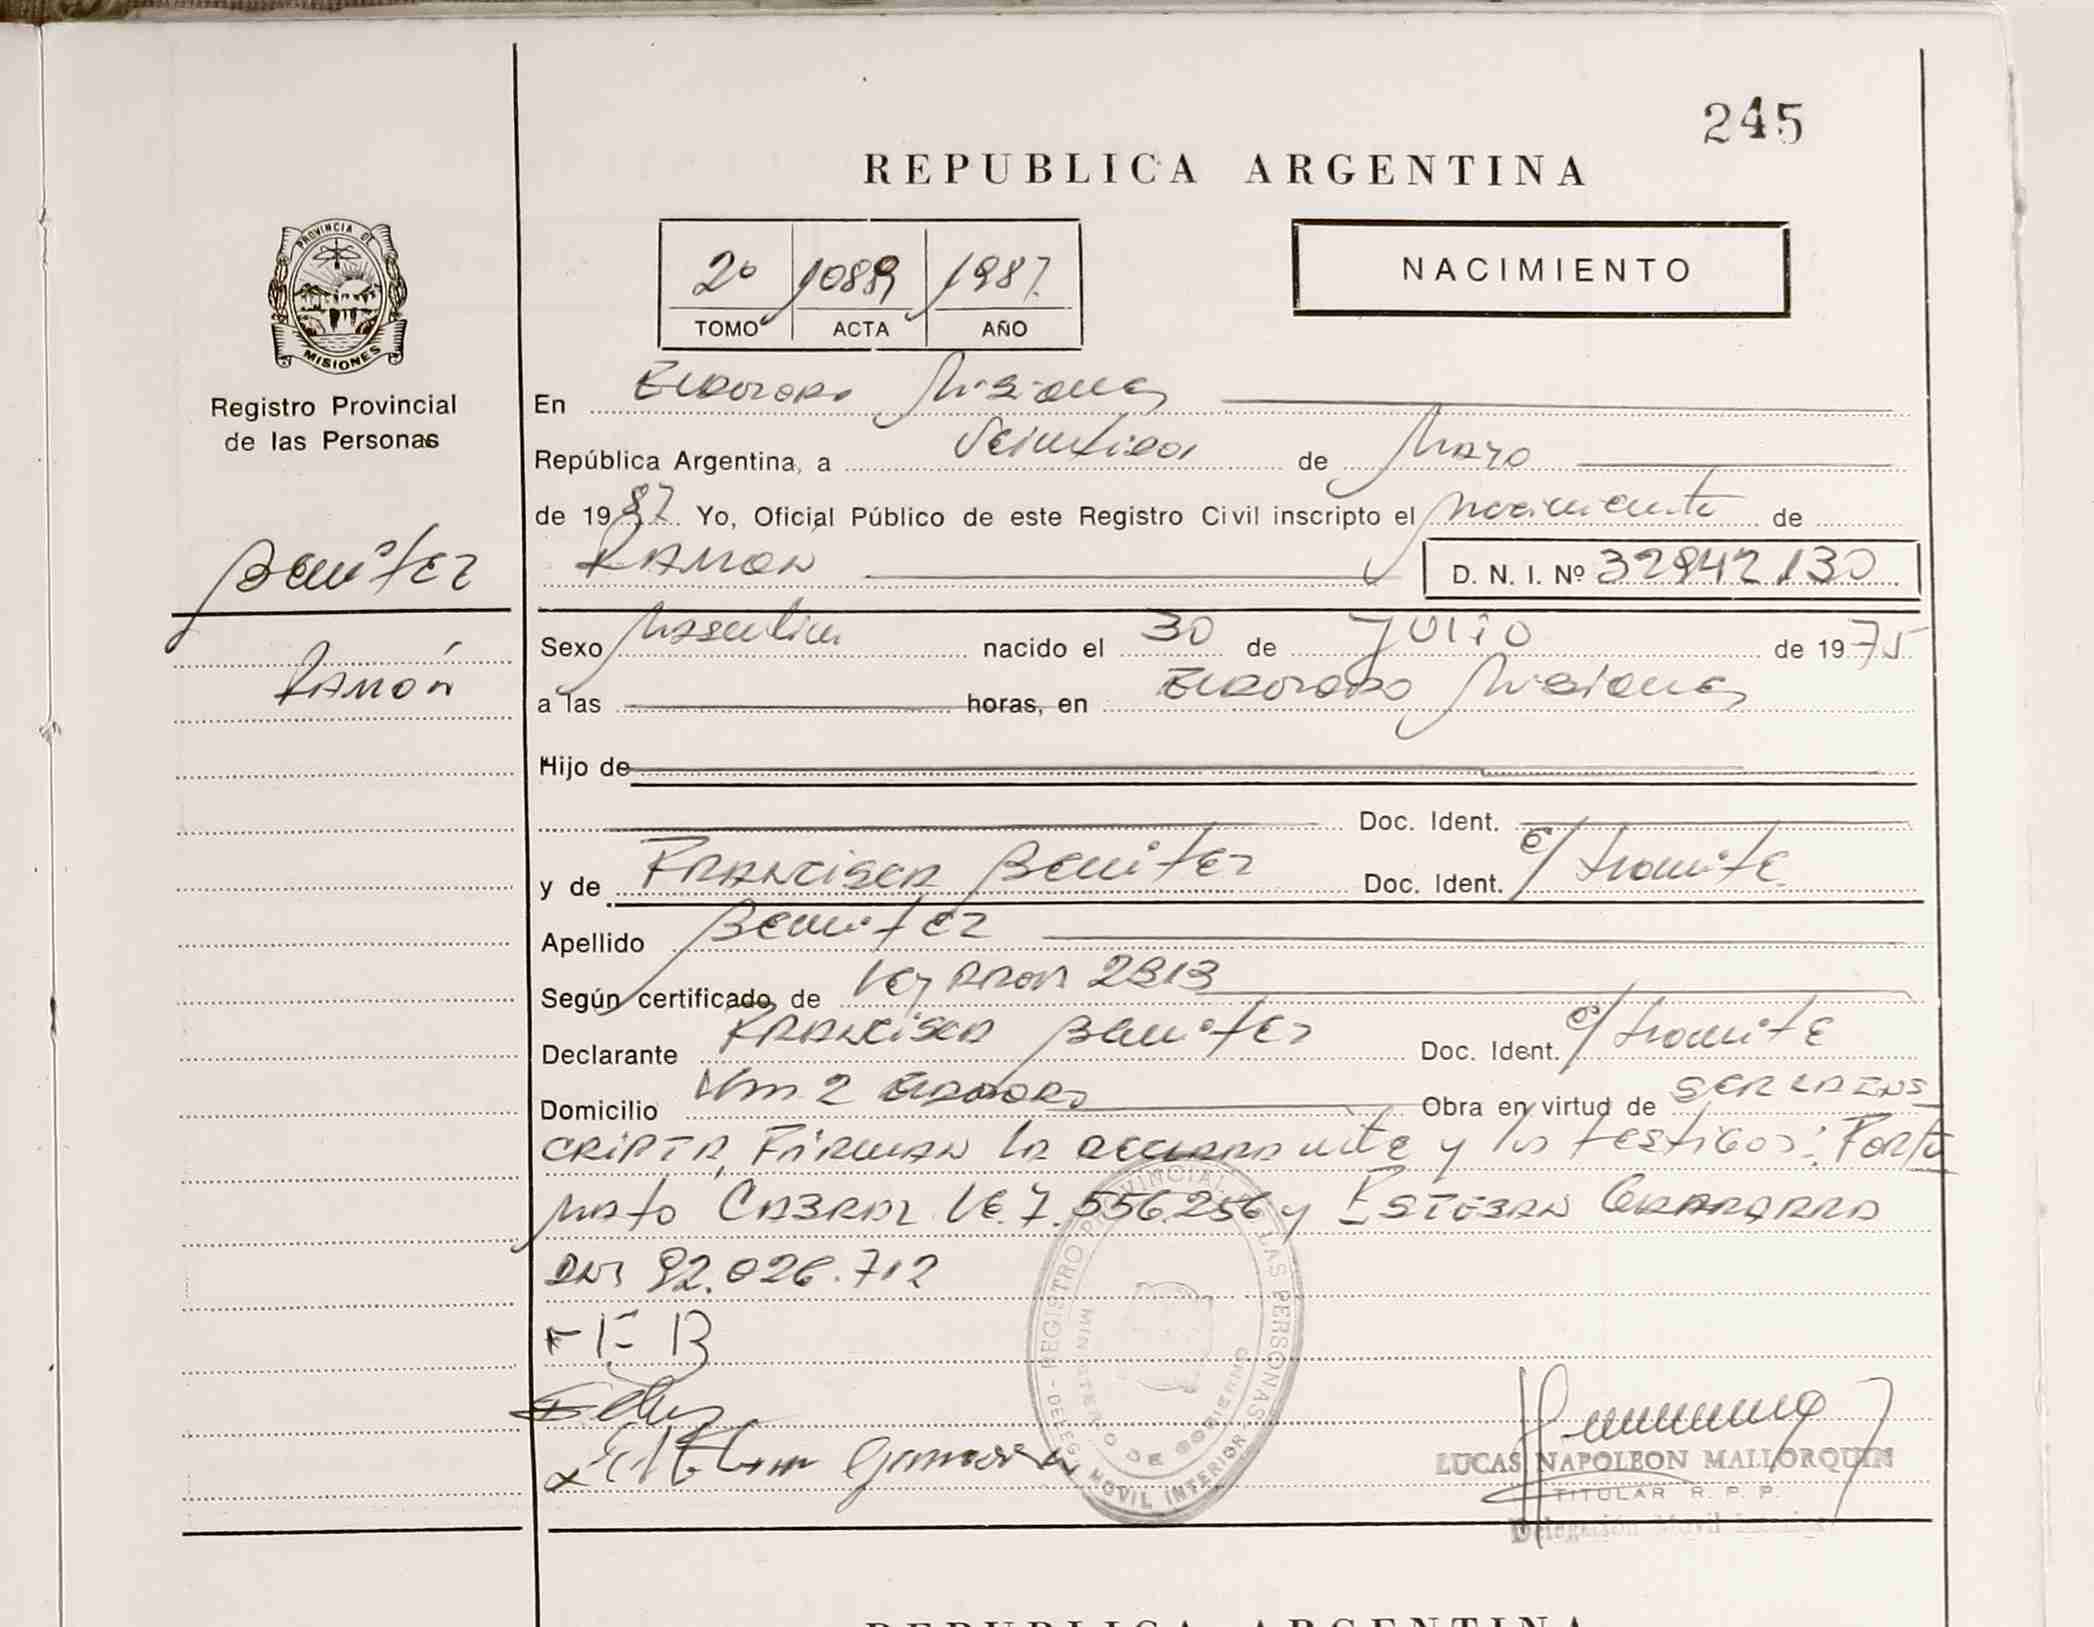 245
REPUBLICA ARGENTINA
PROVINCIA DE
MISIONES
Registro Provincial
de las Personas
2º 1089 1987
TOMO ACTA AÑO
NACIMIENTO
En Eldorado Misiones
República Argentina, a Veintidos de Mayo
de 1987. Yo, Oficial Público de este Registro Civil inscripto el Nacimiento de
RAMON
D. N. I. Nº 32842130
Benitez
Ramón
Sexo Masculino nacido el 30 de Julio de 1975
a las horas, en Eldorado Misiones
Hijo de
Doc. Ident.
y de Francisca Benitez Doc. Ident. e/ tramite
Apellido Benitez
Según certificado de Ley 2313
Declarante Francisca Benitez Doc. Ident. e/ tramite
Domicilio Km 2 Eldorado Obra en virtud de SER LA INS
CRIPTA, Firman la declarante y los testigos: Fortu
nato Cabral LE. 7.556.256 y Esteban Gamarra
DNI 92.026.712
F B
Esteban Gamarra
REGISTRO PROVINCIAL DE LAS PERSONAS
MINISTERIO DE GOBIERNO
DELEG. MOVIL INTERIOR
LUCAS NAPOLEON MALLORQUIN
TITULAR R. P. P.
Delegación Movil Interior
REPUBLICA ARGENTINA